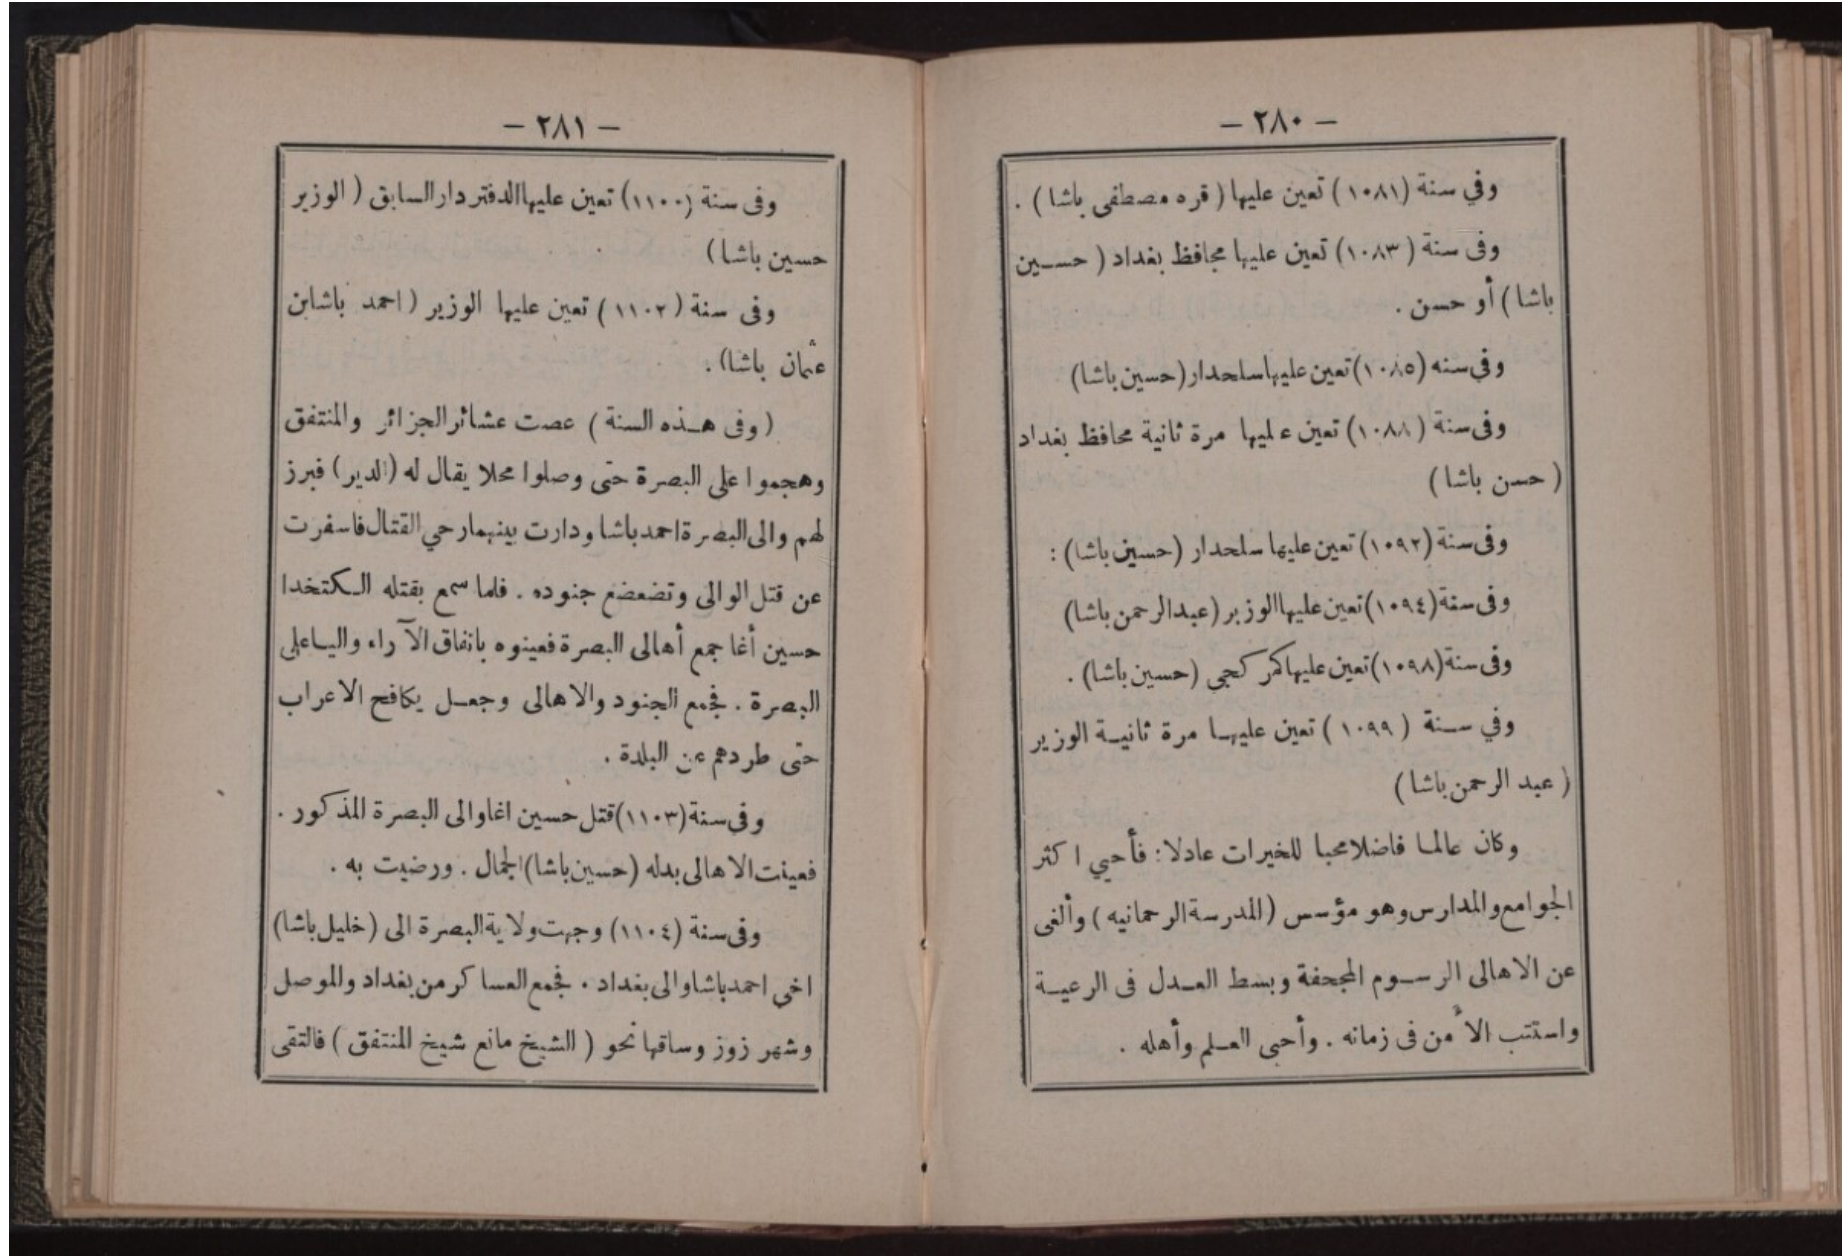 — ٢٨٠ —
وفي سنة (١٠٨١) تعين عليها (قره مصطفى باشا) .
وفى سنة (١٠٨٣) تعين عليها محافظ بغداد (حسـين
باشا) أو حسن .
وفى سنه (١٠٨٥) تعين عليها سلحدار (حسين باشا)
وفى سنة (١٠٨٨) تعين عليها مرة ثانية محافظ بغداد
(حسن باشا)
وفى سنة (١٠٩٢) تعين عليها سلحدار (حسين باشا) :
وفى سنة (١٠٩٤) تعين عليها الوزير (عبد الرحمن باشا)
وفى سنة (١٠٩٨) تعين عليها كمركجي (حسين باشا) .
وفي سـنة (١٠٩٩) تعين عليهـا مرة ثانيـة الوزير
(عبد الرحمن باشا)
وكان عالمـا فاضلا محبا للخيرات عادلا : فأحيي اكثر
الجوامع والمدارس وهو مؤسس (المدرسة الرحمانيه) وألغى
عن الاهالى الرسـوم المجحفة وبسط العـدل فى الرعيـة
واستتب الأمن فى زمانه . وأحيى العـلم وأهله .
— ٢٨١ —
وفى سنة (١١٠٠) تعين عليها الدفتردار السابق (الوزير
حسين باشا)
وفى سنة (١١٠٢) تعين عليها الوزير (احمد باشا بن
عثمان باشا) .
(وفى هـذه السنة) عصت عشائر الجزائر والمنتفق
وهجموا على البصرة حتى وصلوا محلا يقال له (الدير) فبرز
لهم والى البصرة احمد باشا ودارت بينهما رحي القتال فاسفرت
عن قتل الوالى وتضعضع جنوده . فلما سمع بقتله الـكتخدا
حسين أغا جمع أهالى البصرة فعينوه باتفاق الآراء واليـا على
البصرة . فجمع الجنود والاهالى وجعـل يكافح الاعراب
حتى طردهم عن البلدة .
وفى سنة (١١٠٣) قتل حسين اغا والى البصرة المذكور .
فعينت الاهالى بدله (حسين باشا) الجمال . ورضيت به .
وفى سنة (١١٠٤) وجهت ولاية البصرة الى (خليل باشا)
اخي احمد باشا والى بغداد . فجمع العساكر من بغداد والموصل
وشهر زوز وساقها نحو (الشيخ مانع شيخ المنتفق) فالتقى